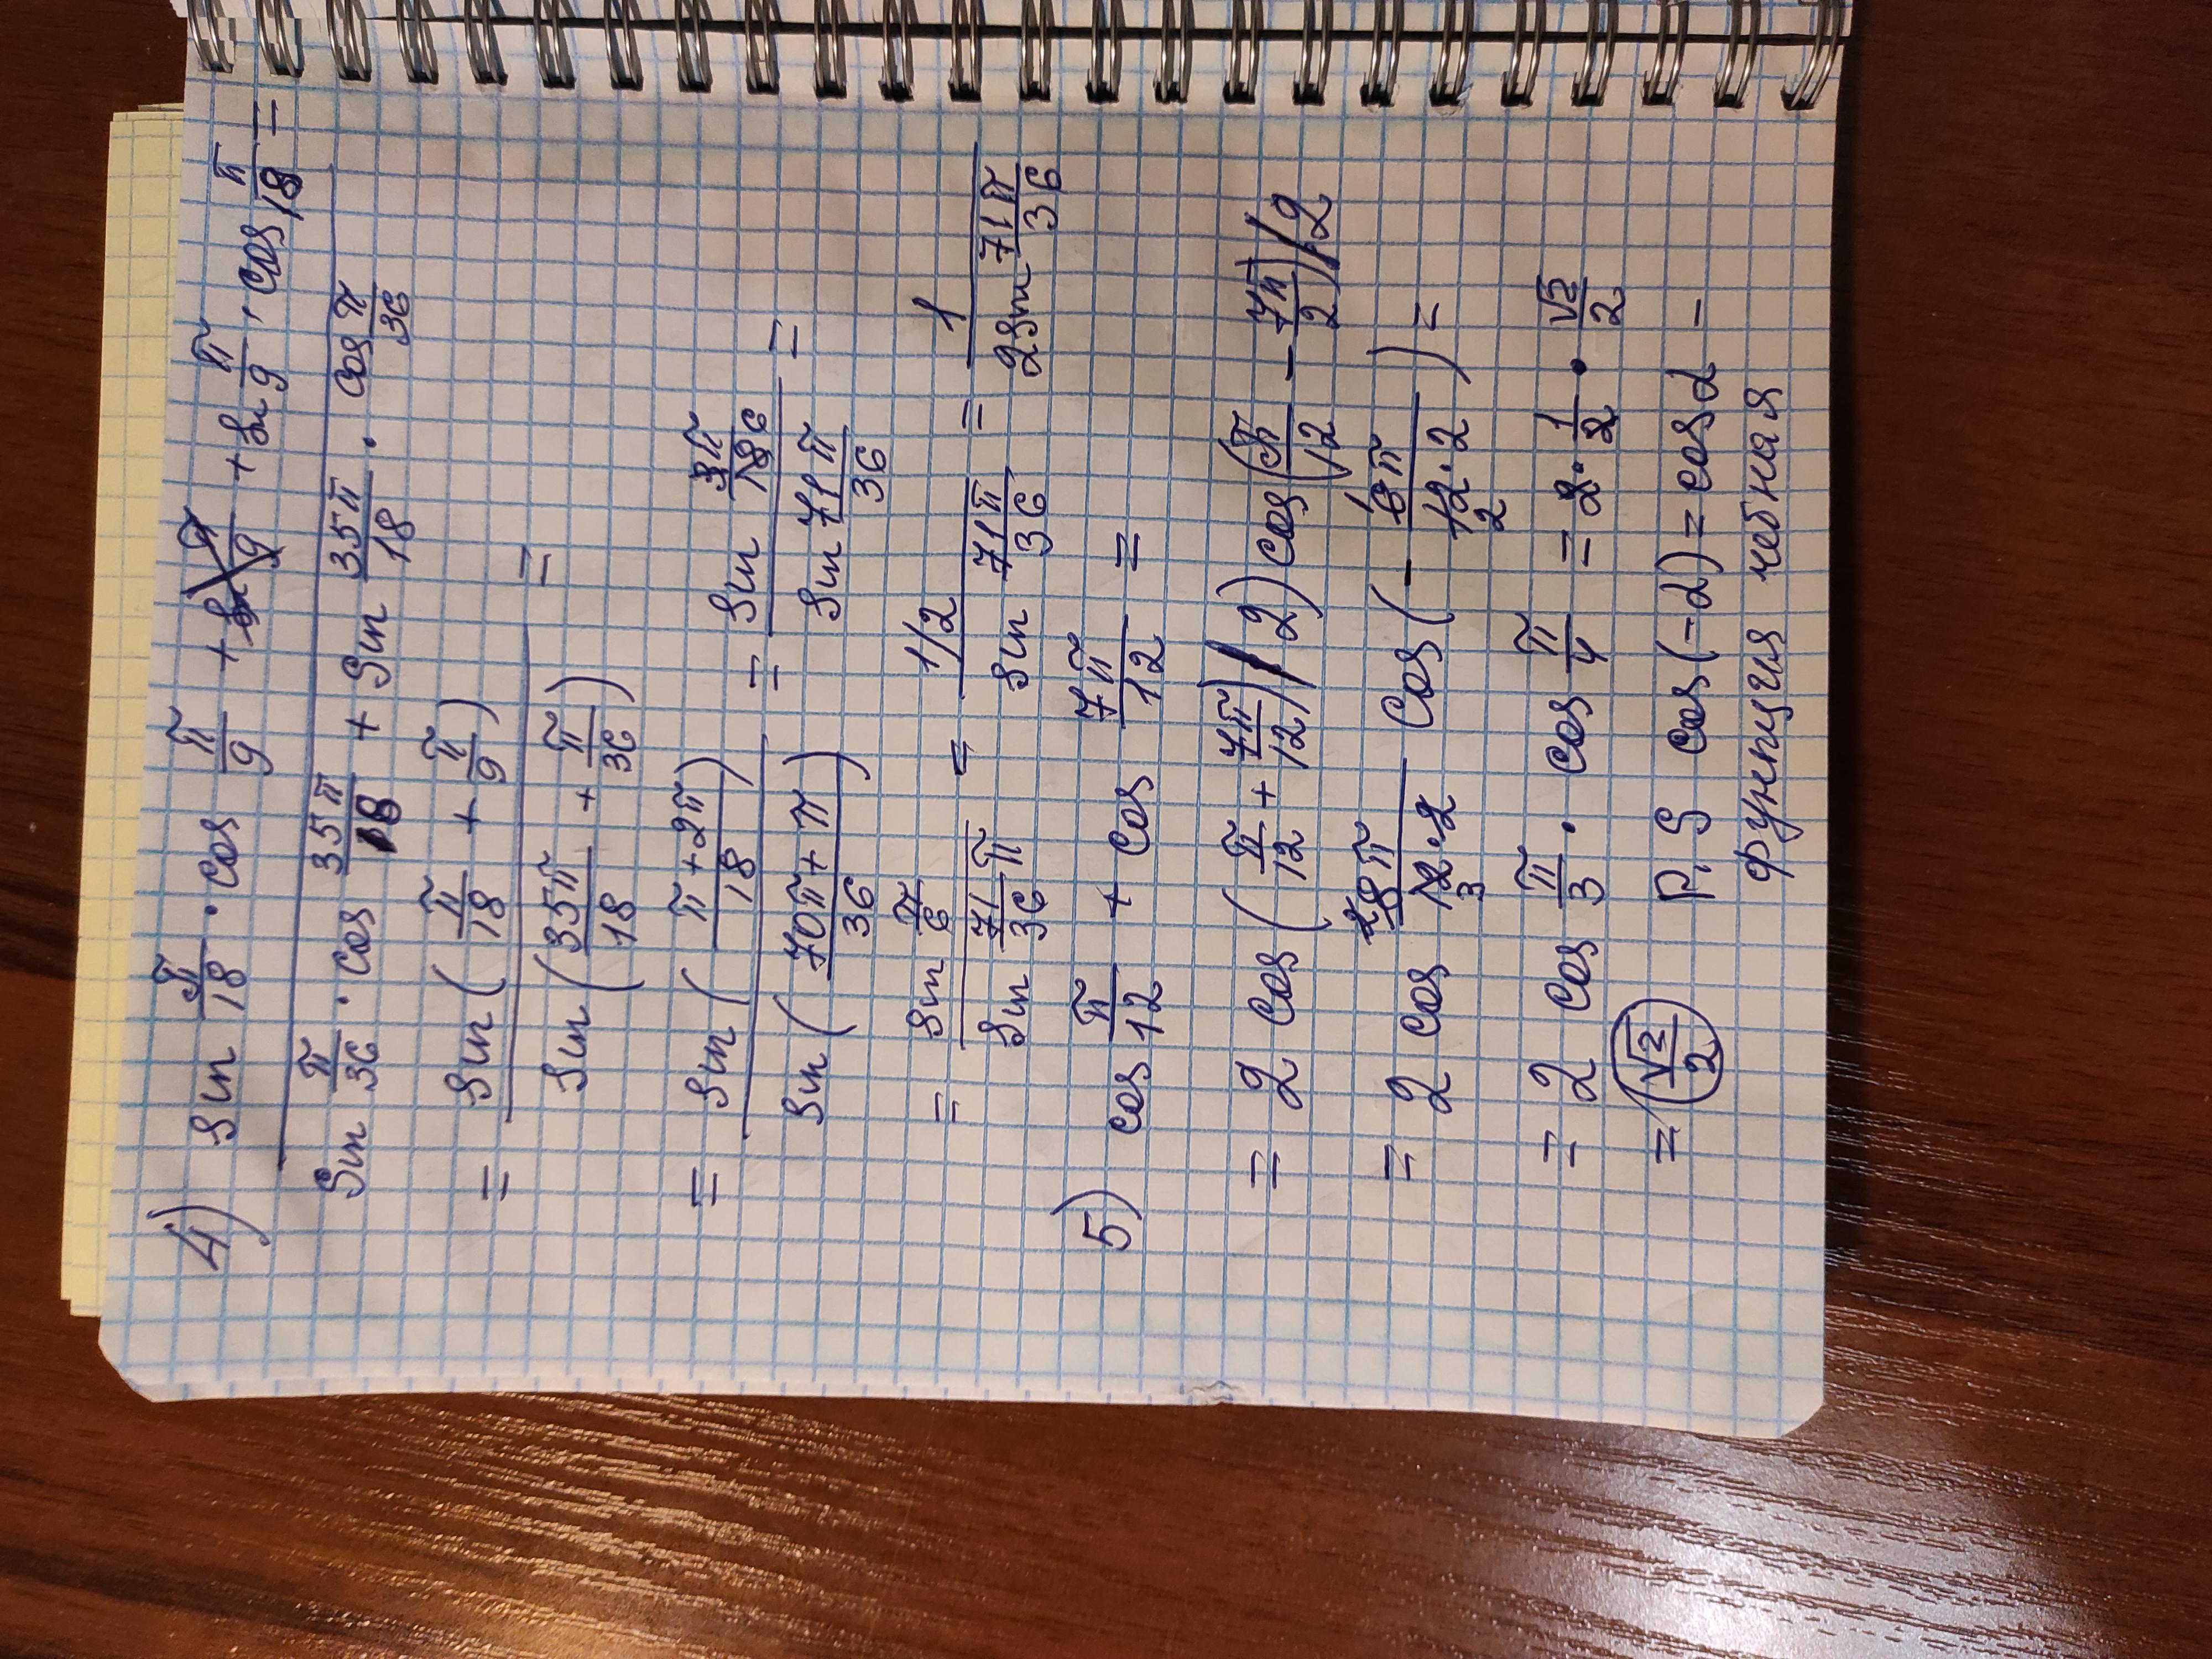 4) sin π/18 · cos π/9 + sin π/9 · cos π/18 =
sin π/36 · cos 35π/18 + sin 35π/18 · cos π/36
= sin(π/18 + π/9) =
sin(35π/18 + π/36)
= sin(π+2π/18) = sin 3π/18 6 =
sin(70π+π/36) sin 71π/36
= sin π/6 = 1/2 = 1
sin 71π/36 sin 71π/36 2sin 71π/36
5) cos π/12 + cos 7π/12 =
= 2 cos(π/12 + 7π/12)/2) cos(π/12 - 7π/2)/2
= 2 cos 8π/12·2 cos(- 6π/12·2) =
= 2 cos π/3 · cos π/4 = 2 · 1/2 · √2/2
= √2/2 P,S cos(-α) = cos α -
функция чебная